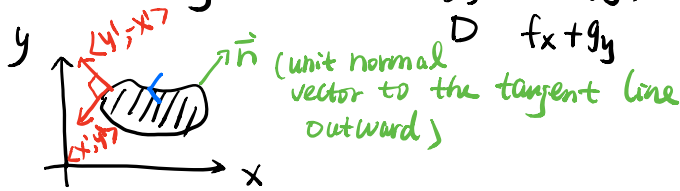 D fx+gy
y
⟨y', -x'⟩
n⃗ (unit normal
vector to the tangent line
outward)
⟨x', y'⟩
x